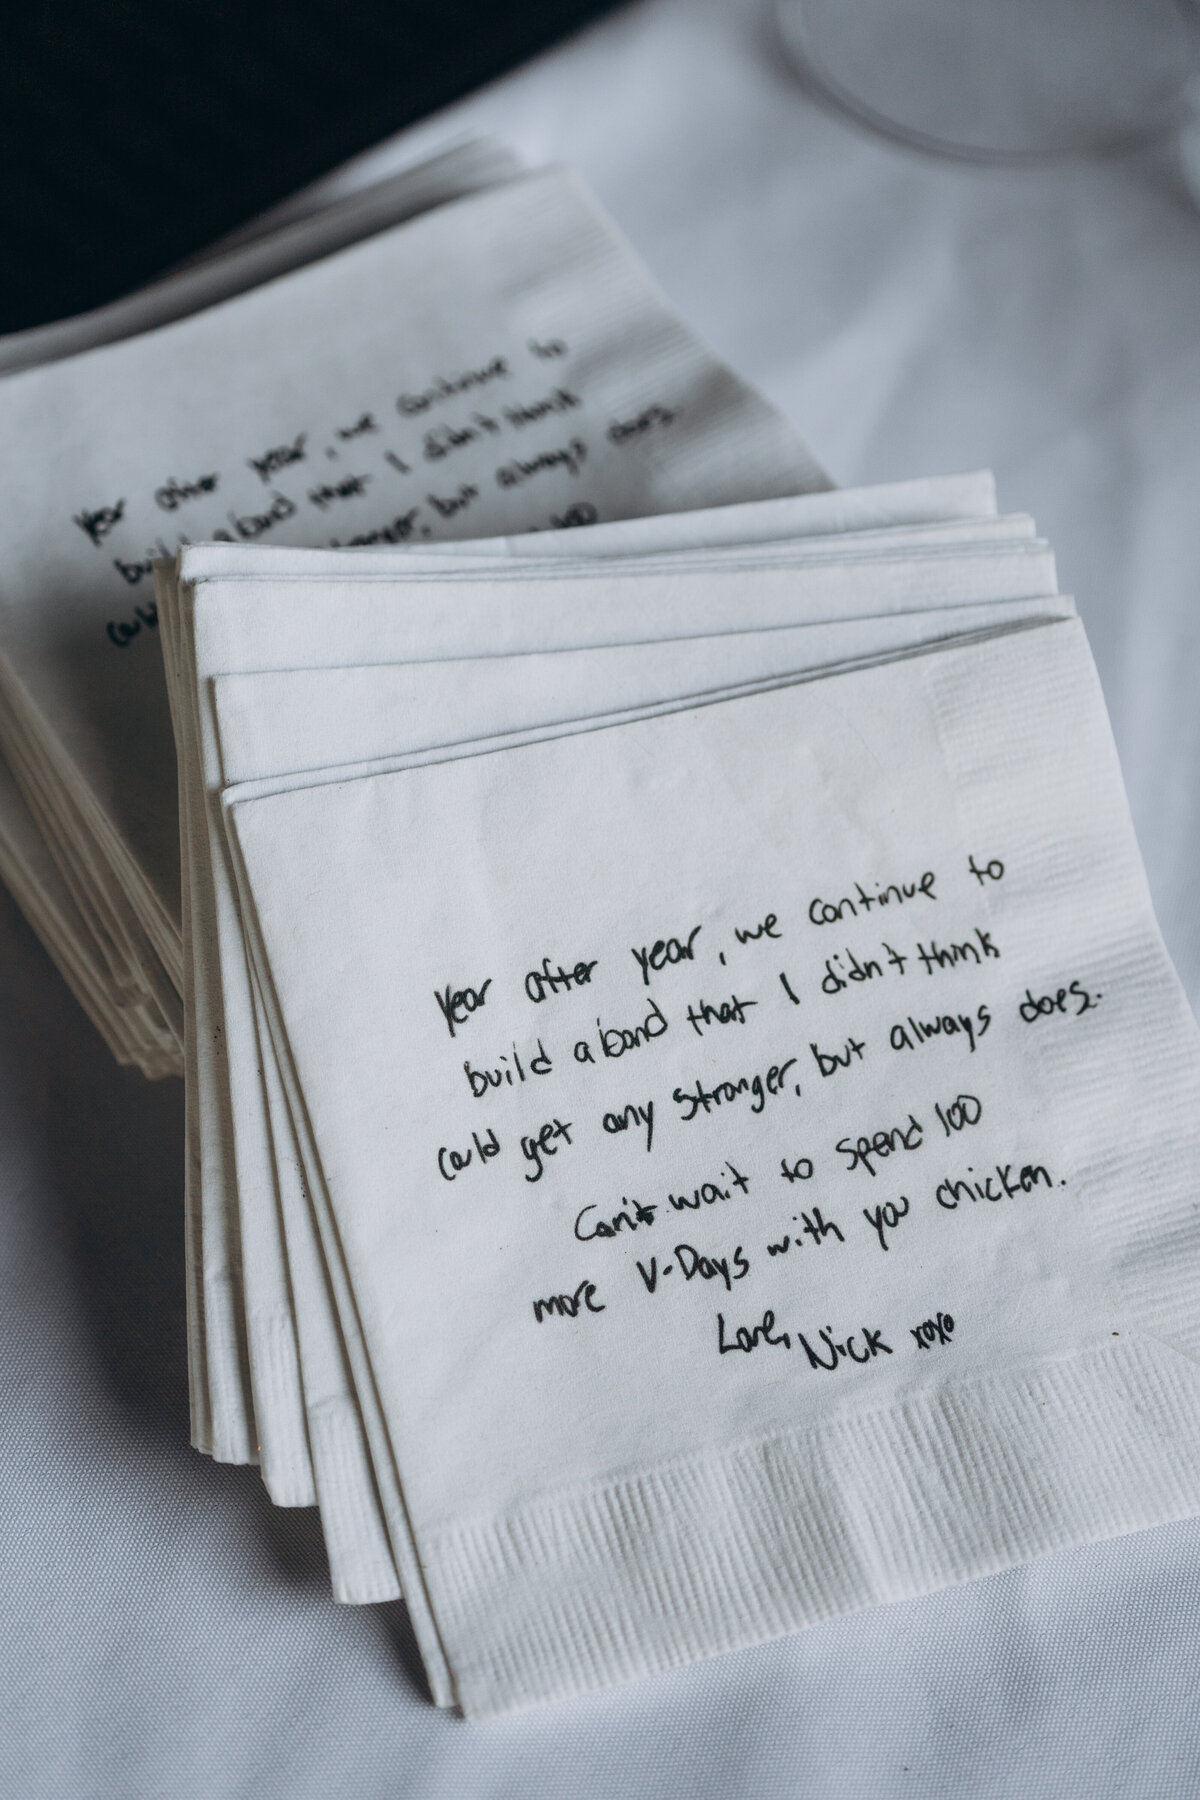 year after year, we continue to
build a bond that I didn't think
could get any stronger, but always does.
100
year after year, we continue to
build a bond that I didn't think
could get any stronger, but always does.
Can't wait to spend 100
more V-Days with you chicken.
Love, Nick xoxo